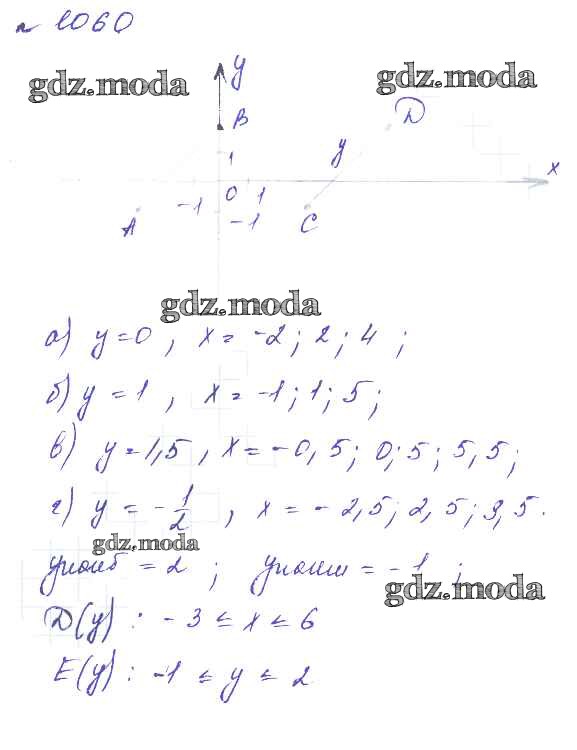 № 1060
gdz.moda
gdz.moda
y
B
D
1
y
x
-1 0 1
A -1 C
gdz.moda
а) y = 0 , x = -2 ; 2 ; 4 ;
б) y = 1 , x = -1 ; 1 ; 5 ;
в) y = 1,5 , x = -0,5 ; 0,5 ; 5,5 ;
г) y = -1/2 , x = -2,5 ; 2,5 ; 3,5 .
gdz.moda
yнаиб = 2 ; yнаим = -1 ;
gdz.moda
D(y) : -3 ≤ x ≤ 6
E(y) : -1 ≤ y ≤ 2